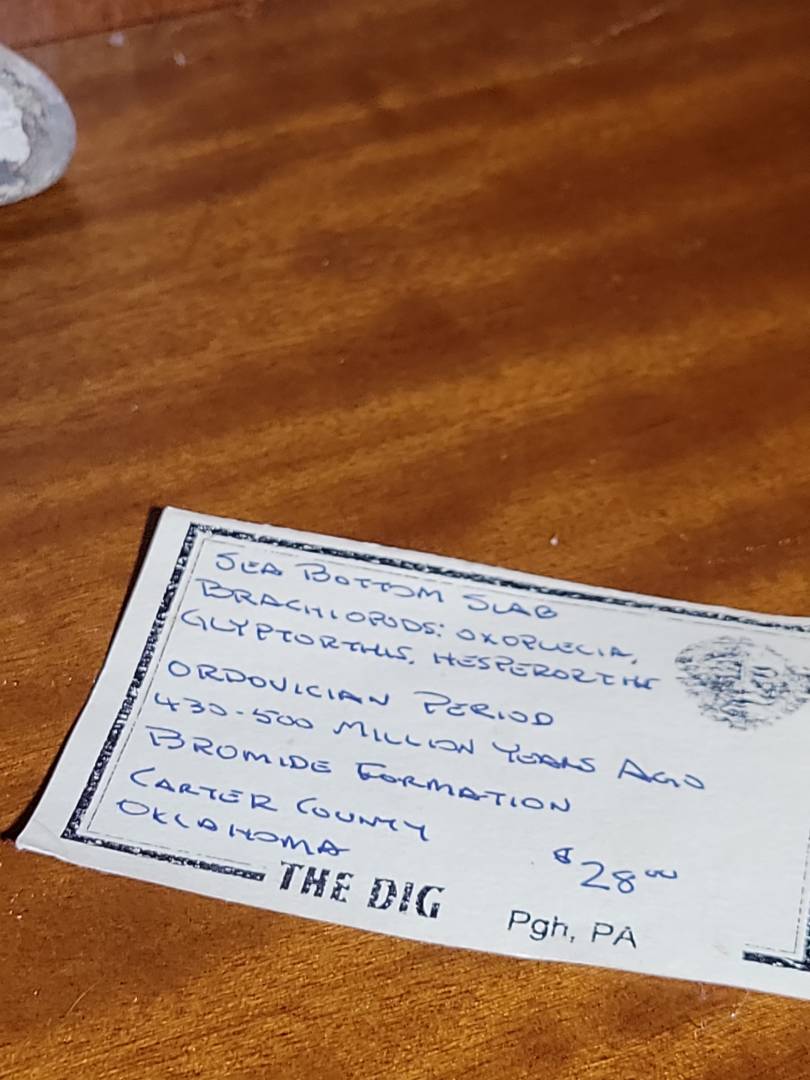 SEA BOTTOM SLAB
BRACHIOPODS: OXOPLECIA,
GLYPTORTHIS, HESPERORTHIS
ORDOVICIAN PERIOD
430-500 MILLION YEARS AGO
BROMIDE FORMATION
CARTER COUNTY
OKLAHOMA
$28.00
THE DIG
Pgh, PA